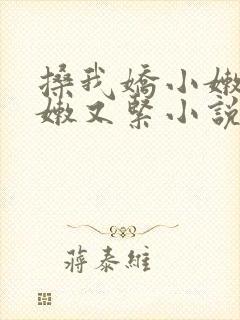 搡我嬌小嫩
嫩又緊小說
蔣泰維